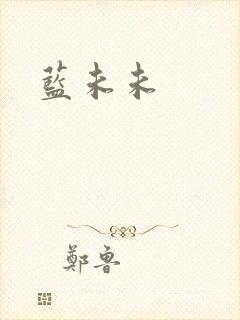 藍未未
鄭魯